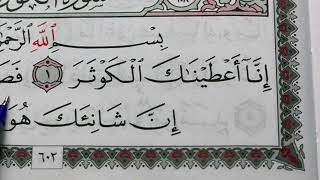 بِسْمِ ٱللَّهِ ٱلرَّحْمَٰ
إِنَّآ أَعْطَيْنَٰكَ ٱلْكَوْثَرَ ١ فَصَ
إِنَّ شَانِئَكَ هُوَ
٦٠٢